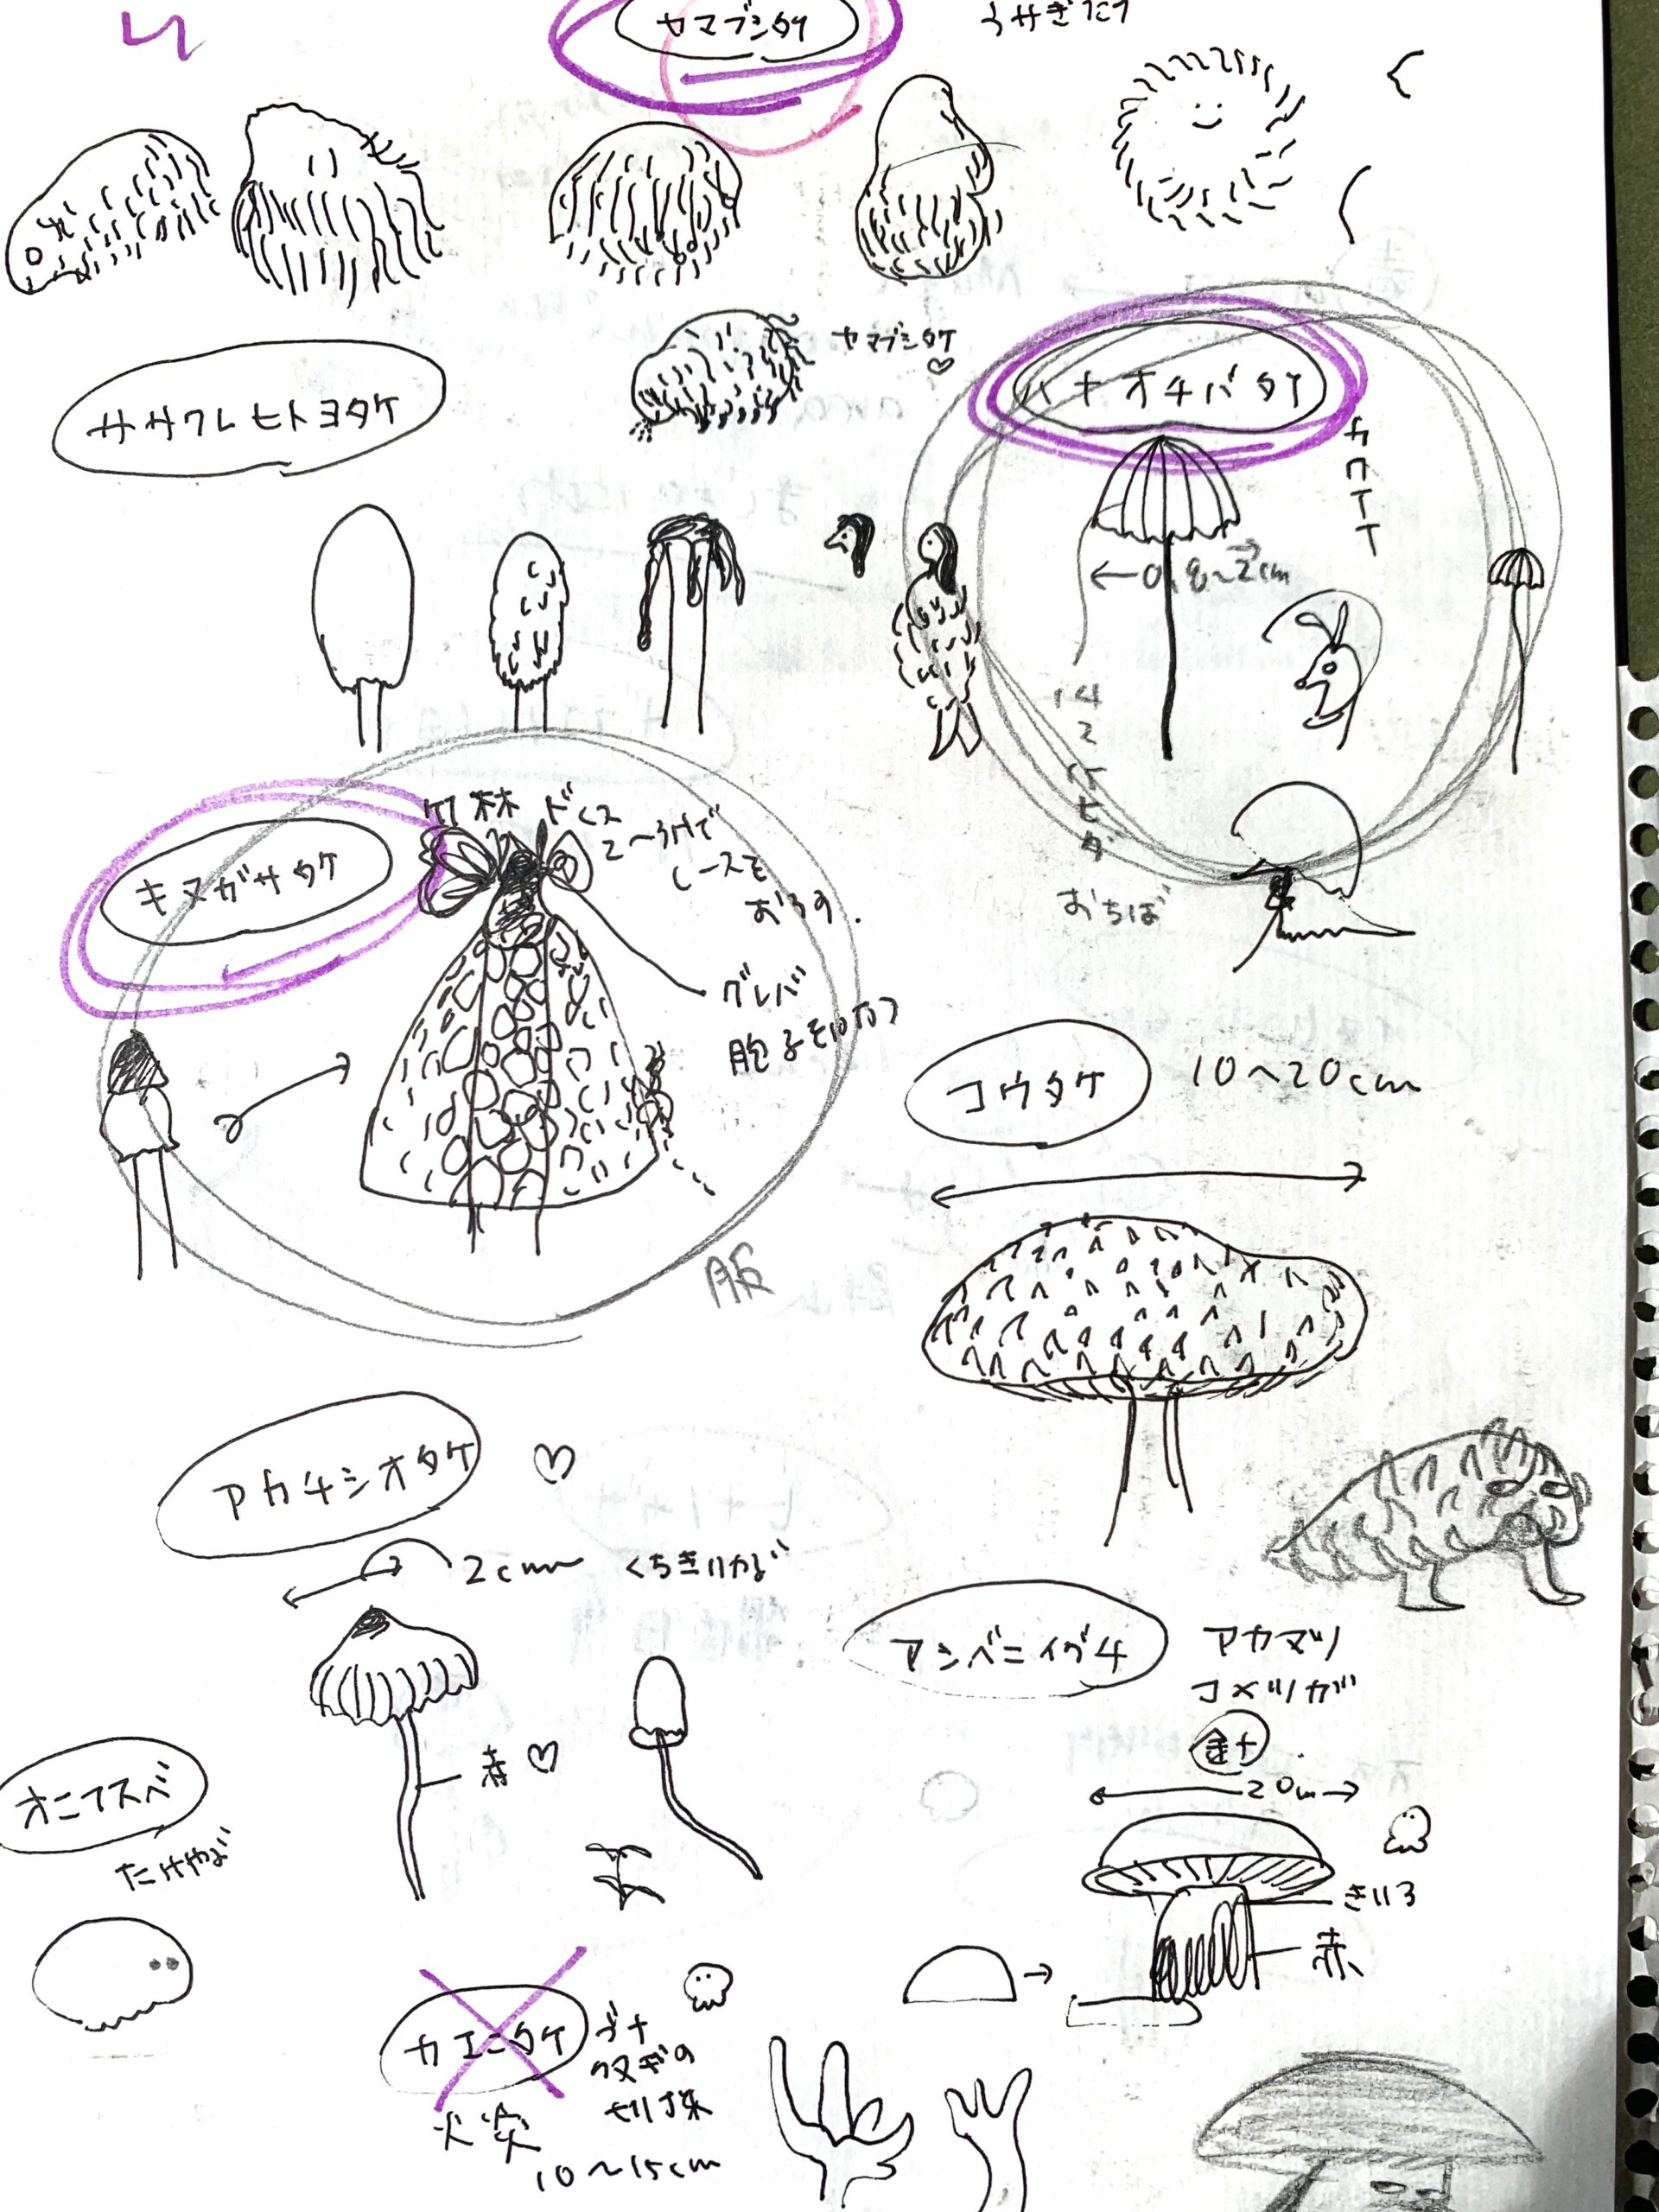 ヤマブシタケ
うさぎだけ
ヤマブシタケ♡
ササクレヒトヨタケ
ハナオチバタケ
カワイイ
←0.8〜2cm
はねこんひだ
おちば
キヌガサタケ
竹林 ドレス
2〜3hで
レースを
おろす.
グレバ
胞子を放つ
服
コウタケ 10〜20cm
アカチシオタケ ♡
2cm くちきにかど
赤♡
アシベニイグチ
アカマツ
コメツガ
針
20cm
きいろ
赤
オニフスベ
たけやぶ
カエンタケ
火炎
ブナ
切り株
10〜15cm